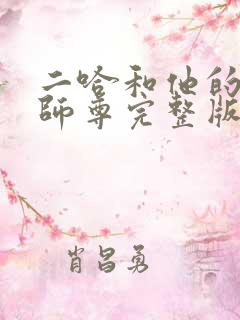 二哈和他的
師尊完整版
肖昌勇